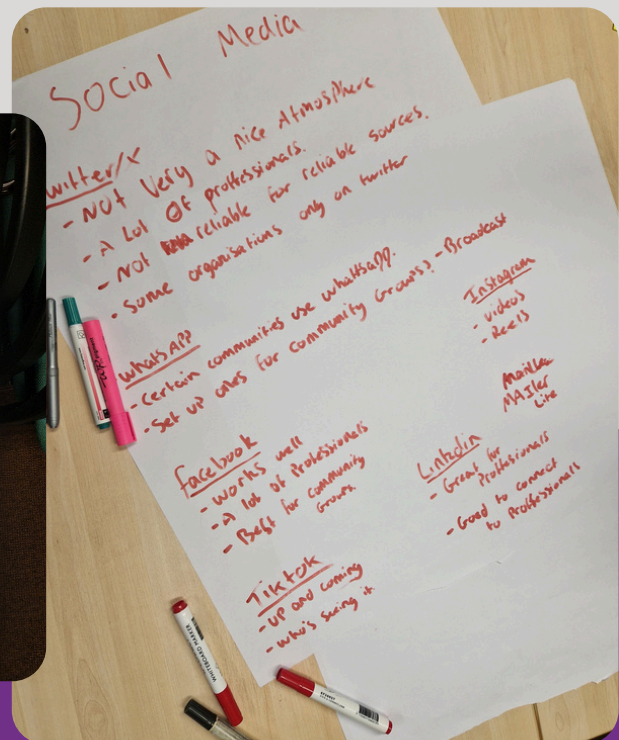 Social Media
witter/X
- Not very a nice Atmosphere
- A Lot Of proffessionals.
- Not reliable for reliable sources.
- Some organisations only on twitter
WhatsApp
- Certain communities use whattsapp.
- Set up ones for community Groups? - Broadcast
Instagram
- videos
- Reels
MAILer
Lite
Facebook
- works well
- A lot of Professionals
- Best for community
Groups
Linkdin
- Great for
Proffesionals
- Good to connect
to Proffessionals
Tiktok
- up and coming
- who's seeing it
WHITEBOARD MARKER